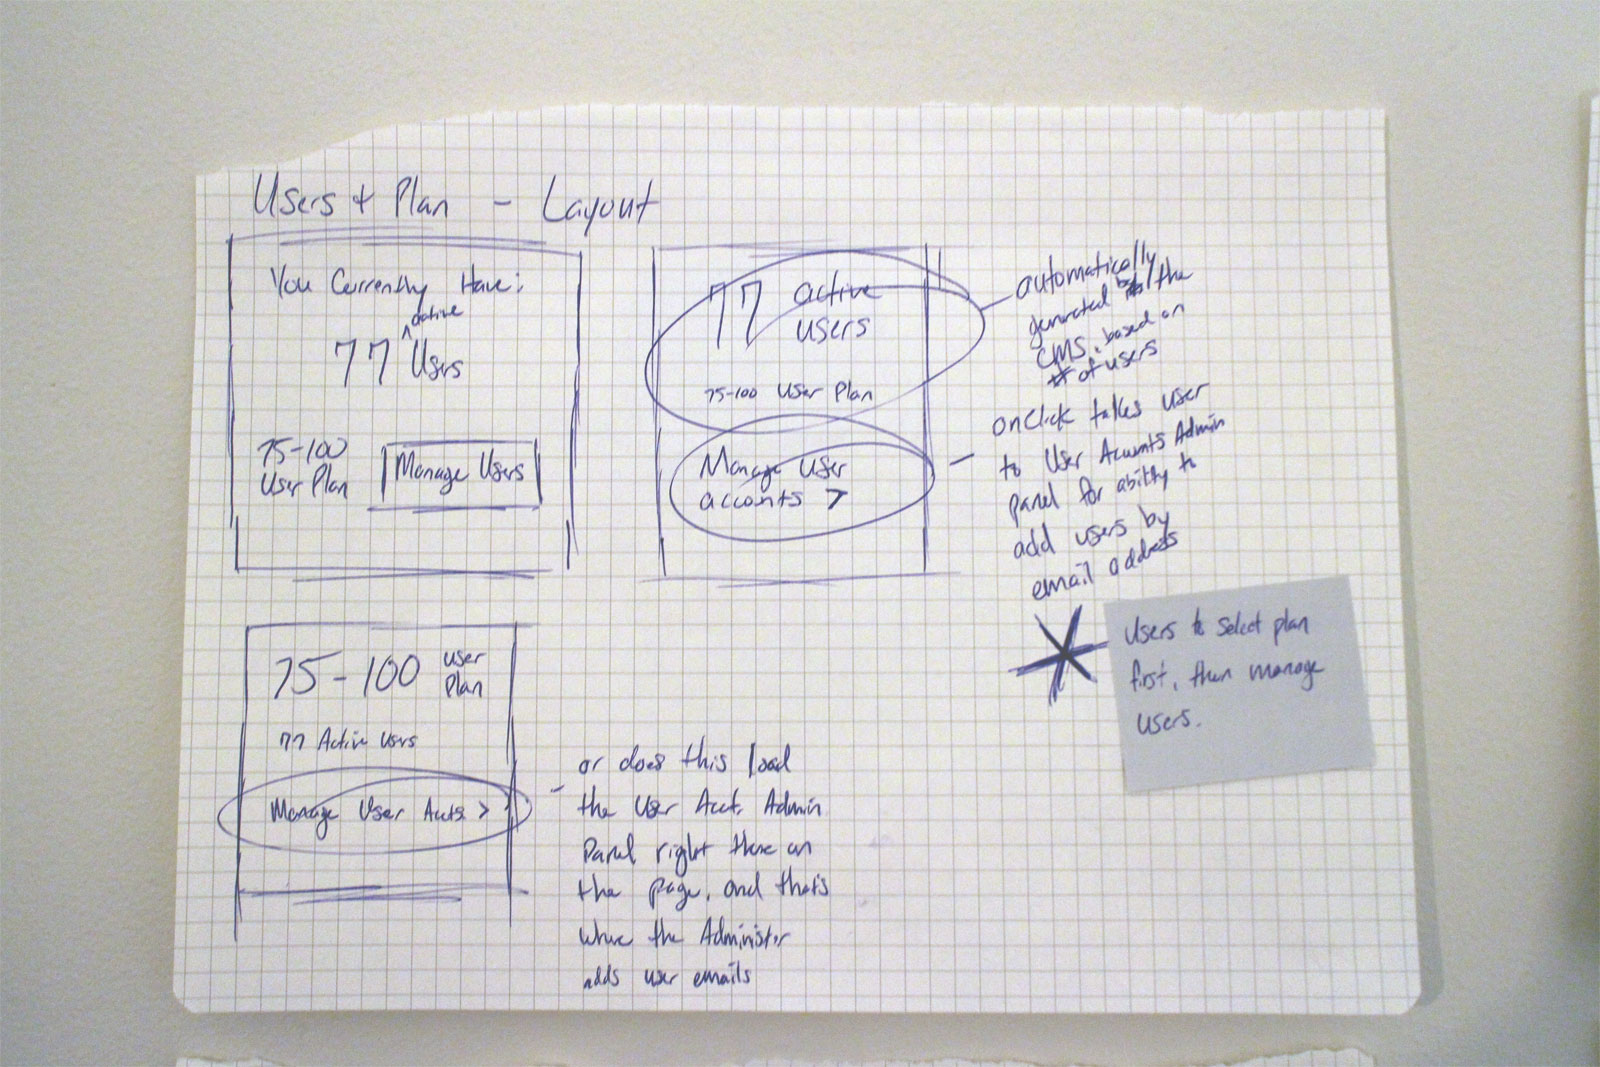 Users + Plan - Layout
You Currently Have:
active
77 Users
75-100
User Plan
Manage Users
77 active
users
75-100 User Plan
Manage User
accounts >
automatically
generated by the
CMS, based on
# of users
onclick takes user
to User Accounts Admin
panel for ability to
add users by
email address
Users to select plan
first, then manage
users.
75-100 user
plan
77 Active Users
Manage User Accts >
or does this load
the User Acct. Admin
Panel right there on
the page, and that's
where the Administor
adds user emails